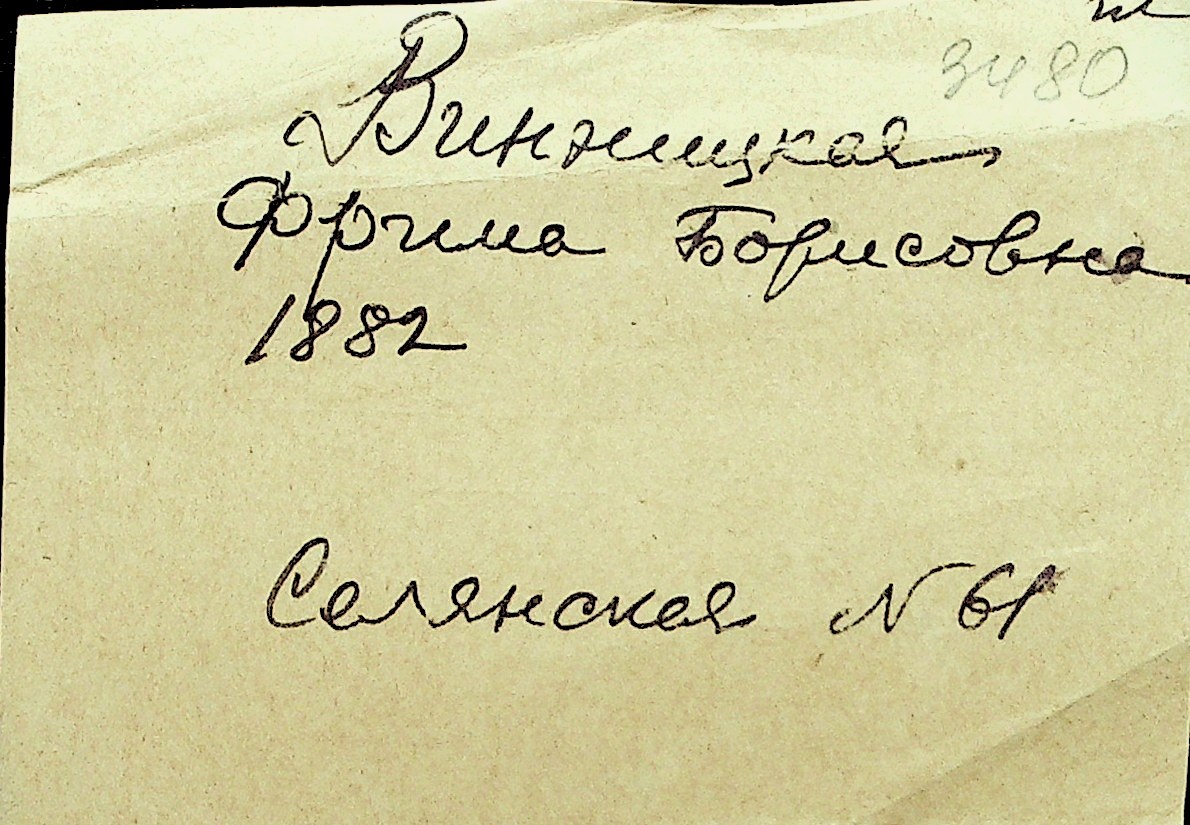 3480
Винницкая
Фрима Борисовна
1882
Селянская N 61